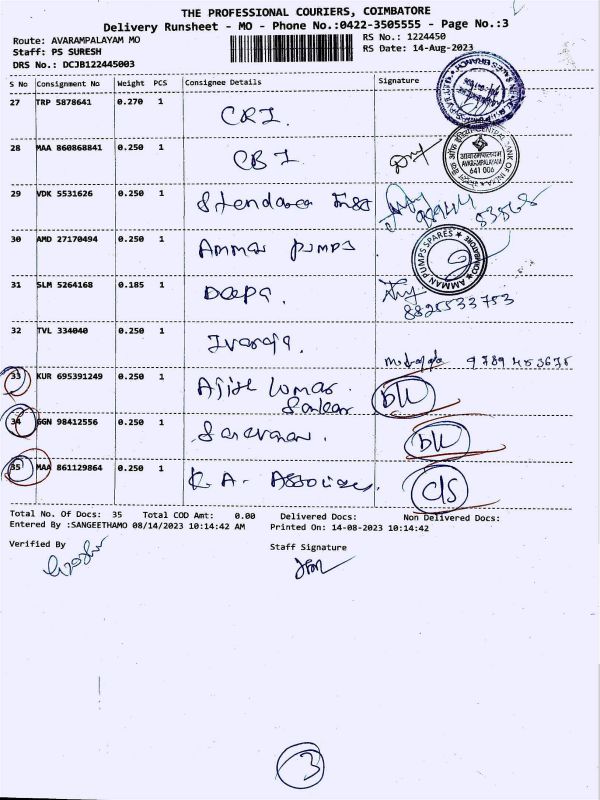 THE PROFESSIONAL COURIERS, COIMBATORE
Delivery Runsheet - MO - Phone No.:0422-3505555 - Page No.:3
Route: AVARAMPALAYAM MO RS No.: 1224450
Staff: PS SURESH RS Date: 14-Aug-2023
DRS No.: DCJB122445003
S No Consignment No Weight PCS Consignee Details Signature
27 TRP 5878641 0.270 1 CRI.
28 MAA 860868841 0.250 1 CBI
CENTRAL BANK OF INDIA
AVARAMPALAYAM
641 006
29 VDK 5531626 0.250 1
98944 83868
30 AMD 27170494 0.250 1 Ammar pumps
AMMAN PUMPS SPARES
31 SLM 5264168 0.185 1 Deepa.
8825533753
32 TVL 334040 0.250 1 Ivaraja.
9789453675
33 KUR 695391249 0.250 1 Ajith kumar
Sankar
DL
34 GGN 98412556 0.250 1 Saravanan.
DL
35 MAA 861129864 0.250 1 K. A. Associates.
C/S
Total No. Of Docs: 35 Total COD Amt: 0.00 Delivered Docs: Non Delivered Docs:
Entered By :SANGEETHAMO 08/14/2023 10:14:42 AM Printed On: 14-08-2023 10:14:42
Verified By Staff Signature
3